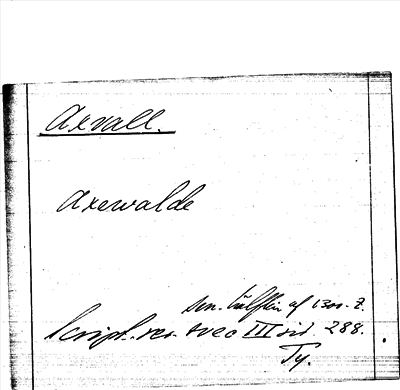 Axvall.
Axewalde
sen. hälften af 1300-t.
Script. rer. svec III sid. 288.
Ty.